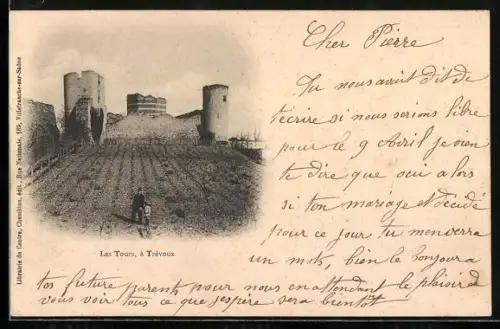 Librairie du Centre, Chambion, édit., Rue Nationale, 185, Villefranche-sur-Saône
Les Tours, à Trévoux
Cher Pierre
Tu nous avait dit de
t'écrire si nous serions libre
pour le 9 Avril je vien
te dire que oui alors
si ton mariage et décidé
pour ce jour tu m'enverra
un mot, bien le bonjour a
tos future parents pour nous en attendant le plaisir d
vous voir tous ce que j'espère sera bientôt